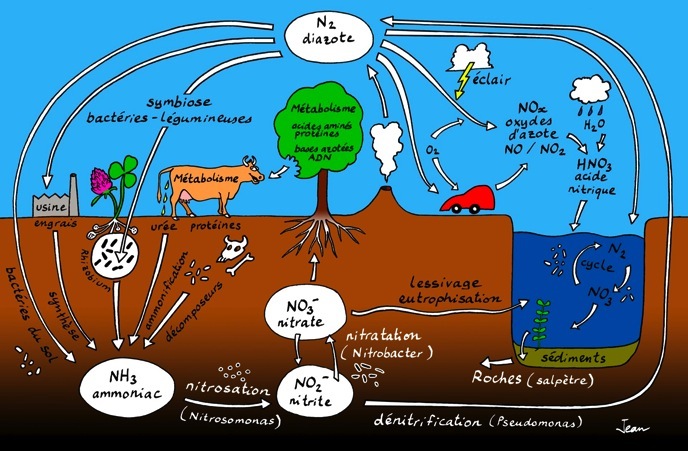 N2
diazote
éclair
symbiose
bactéries-légumineuses
Métabolisme
acides aminés
protéines
bases azotées
ADN
NOx
oxydes
d'azote
NO / NO2
H2O
O2
HNO3
acide
nitrique
Métabolisme
usine
engrais
urée protéines
Rhizobium
bactéries du sol
synthèse
ammonification
décomposeurs
N2
cycle
NO3
lessivage
eutrophisation
NO3-
nitrate
nitratation
(Nitrobacter)
sédiments
Roches (salpêtre)
NH3
ammoniac
nitrosation
(Nitrosomonas)
NO2-
nitrite
dénitrification (Pseudomonas)
Jean